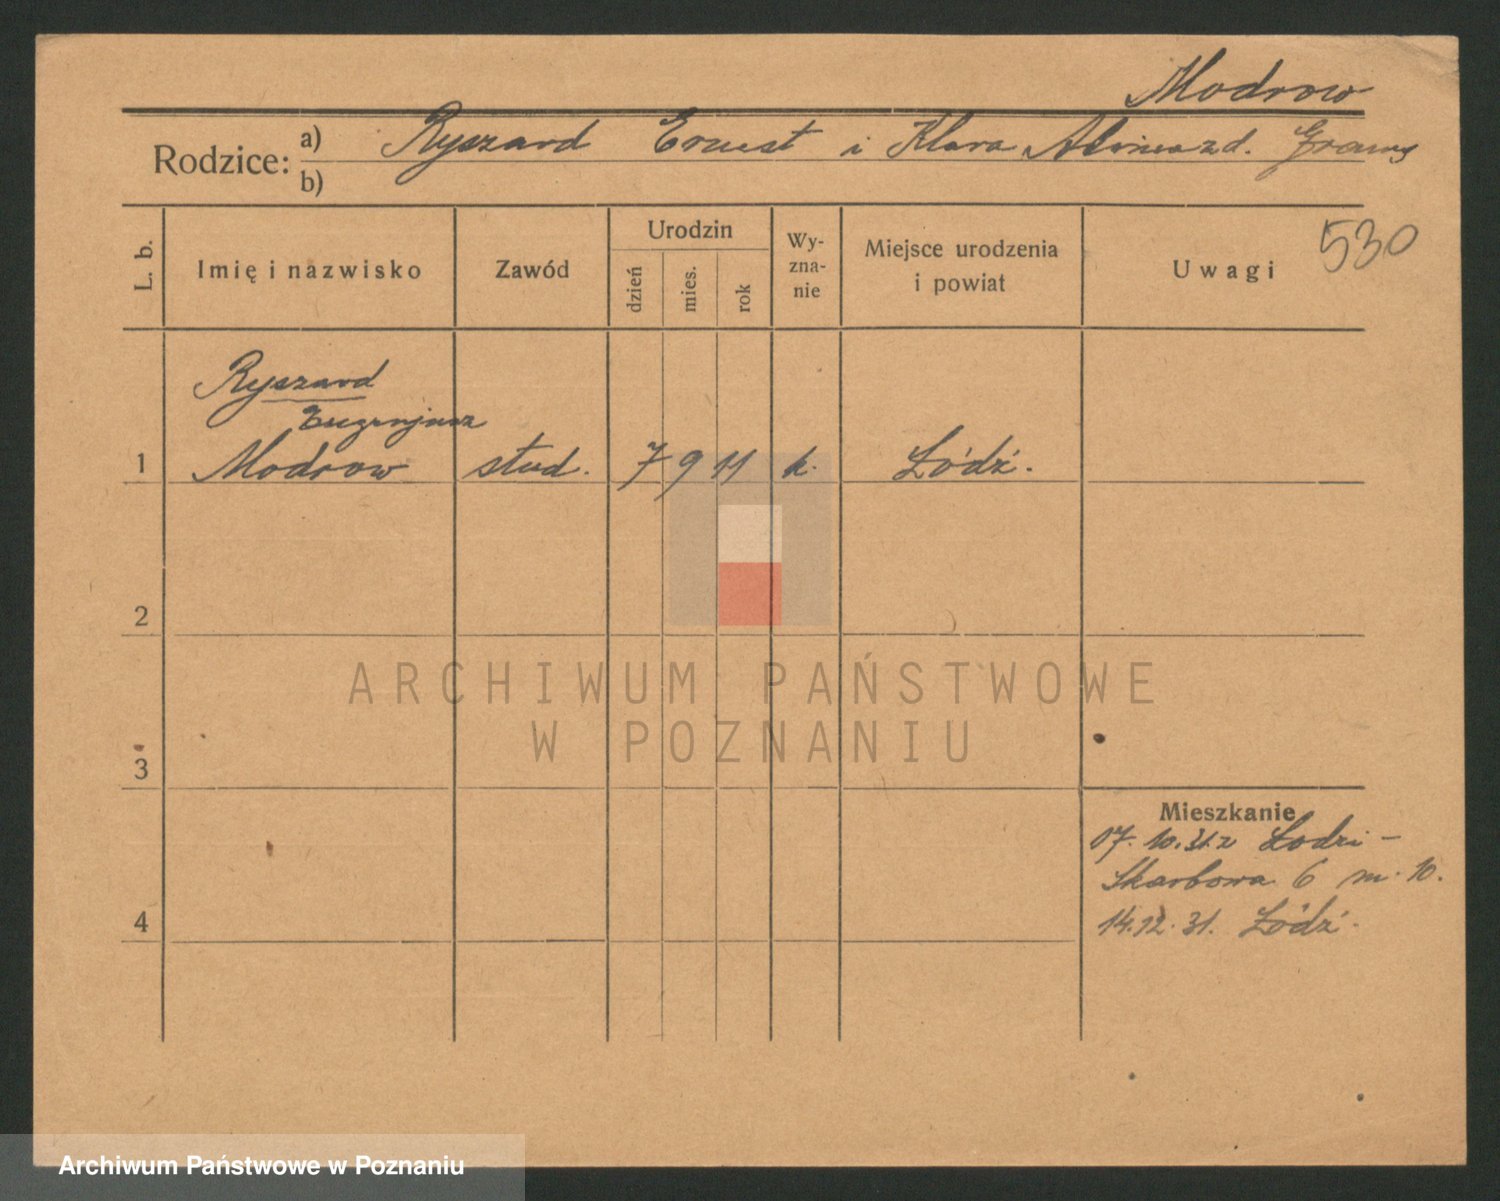 Modrow
Rodzice: a) Ryszard Ernest i Klara Alwina zd.
b)
530
L. b.
Imię i nazwisko
Zawód
Urodzin
dzień
mies.
rok
Wy-
zna-
nie
Miejsce urodzenia
i powiat
Uwagi
Ryszard
Eugenjusz
1 Modrow stud. 7 9 11 k. Łódź.
2
3
4
Mieszkanie
07.10.31 z Łodzi -
Skarbowa 6 m. 10.
14.12.31. Łódź.
ARCHIWUM PAŃSTWOWE
W POZNANIU
Archiwum Państwowe w Poznaniu